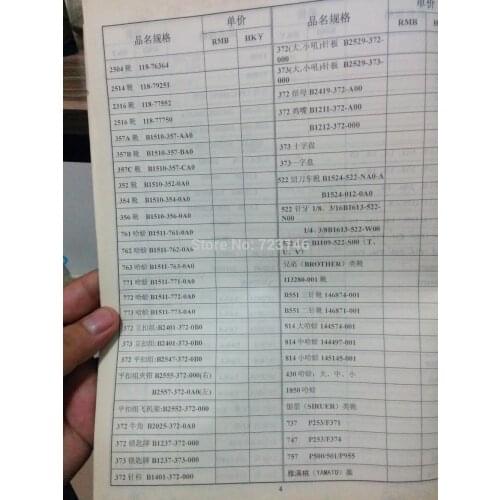 品名规格 单价
RMB HK￥
2504 靴 118-76364
2514 靴 118-79251
2316 靴 118-77552
2516 靴 118-77750
357A 靴 B1510-357-AA0
357B 靴 B1510-357-BA0
357C 靴 B1510-357-CA0
352 靴 B1510-352-0A0
354 靴 B1510-354-0A0
356 靴 B1510-356-0A0
761 哈蛤 B1511-761-0A0
762 哈蛤 B1511-762-0A0
763 哈蛤 B1511-763-0A0
771 哈蛤 B1511-771-0A0
772 哈蛤 B1511-772-0A0
773 哈蛤 B1511-773-0A0
372 立扣组:B2401-372-0B0
373 立扣组:B2401-373-0B0
372 平扣组:B2547-372-0B0
平扣组夹带 B2555-372-000(右)
B2557-372-0A0(左)
平扣组飞机架:B2552-372-000
372 牛角 B2025-372-0A0
372 锁匙牌 B1237-372-000
373 锁匙牌 B1237-373-000
372 针杆 B1401-372-000
品名规格 单价
RMB
372(大,小吼)针板 B2529-372-
000
373(大,小吼)针板 B2529-373-
000
372 B2419-372-A00
372 鸡嘴 B1211-372-A00
B1212-372-000
373 十字盘
373 一字盘
522 切刀车靴 B1524-522-NA0-A
B1524-012-0A0
522 针牙 1/8、3/16B1613-522-
N00
1/4、3/8B1613-522-W00
B1109-522-S00 (T、
U、V)
兄弟 (BROTHER) 类靴
112280-001 靴
B551 三针靴 146874-001
B551 二针靴 146871-001
814 大哈蛤 144574-001
814 中哈蛤 144497-001
814 小哈蛤 145145-001
430 哈蛤: 大、中、小
1850 哈蛤
银箭 (SIRUER) 类靴
737 P253/F371
747 P253/F374
757 P500/501/P955
雅满稿 (YAMATO) 类
4
Store No: 723146